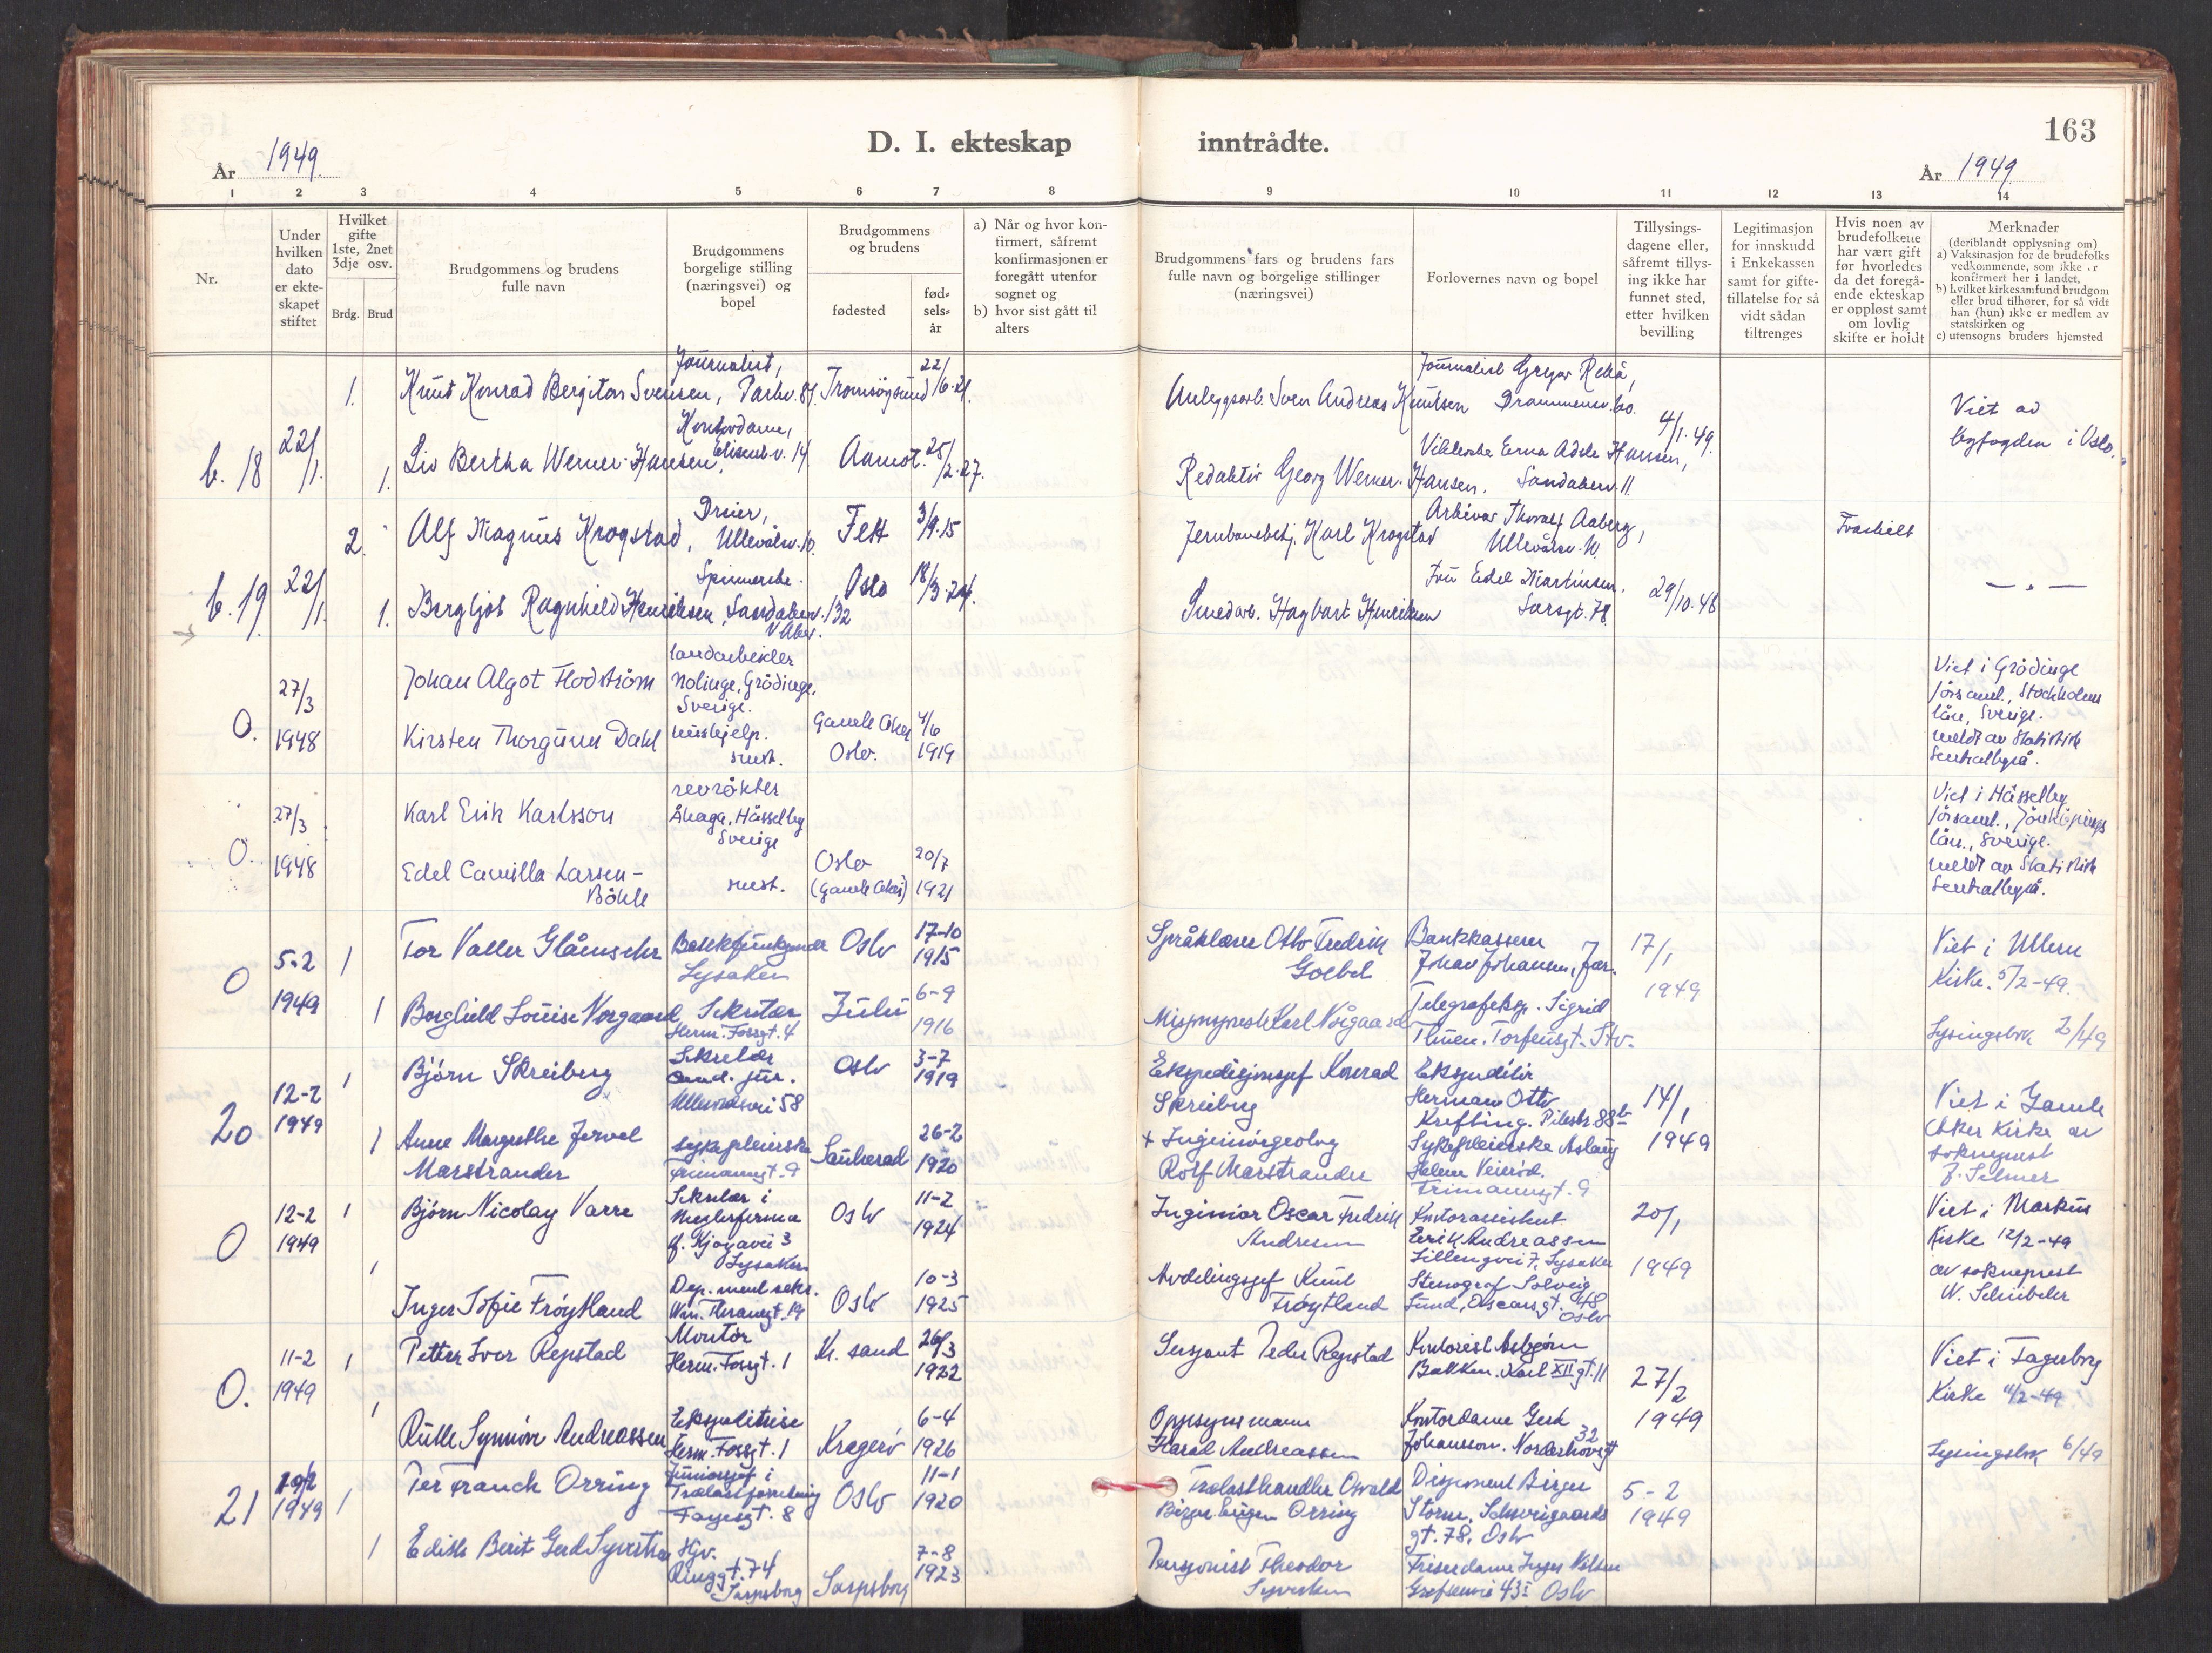 163
D. I. ekteskap inntrådte.
År 1949
År 1949
1 2 3 4 5 6 7 8 9 10 11 12 13 14
Nr.
Under
hvilken
dato
er ekte-
skapet
stiftet
Hvilket
gifte
1ste, 2net
3dje osv.
Brdg. Brud
Brudgommens og brudens
fulle navn
Brudgommens
borgelige stilling
(næringsvei) og
bopel
Brudgommens
og brudens
fødested
fød-
sels-
år
a) Når og hvor kon-
firmert, såfremt
konfirmasjonen er
foregått utenfor
sognet og
b) hvor sist gått til
alters
Brudgommens fars og brudens fars
fulle navn og borgelige stillinger
(næringsvei)
Forlovernes navn og bopel
Tillysings-
dagene eller,
såfremt tillys-
ing ikke har
funnet sted,
etter hvilken
bevilling
Legitimasjon
for innskudd
i Enkekassen
samt for gifte-
tillatelse for så
vidt sådan
tiltrenges
Hvis noen av
brudefolkene
har vært gift
før hvorledes
da det foregå-
ende ekteskap
er oppløst samt
om lovlig
skifte er holdt
Merknader
(deriblandt opplysning om)
a) Vaksinasjon for de brudefolks
vedkommende, som ikke er
konfirmert her i landet,
b) hvilket kirkesamfund brudgom
eller brud tilhører, for så vidt
han (hun) ikke er medlem av
statskirken og
c) utensogns bruders hjemsted
b. 18 22/1.
1. Knut Konrad Bergiton Svensen,
Journalist,
Parkv. 8
Tromsøysund
22/6.21.
Anleggsarb. Sven Andreas Knutsen
Journalist
Drammensv. 60.
4/1.49.
Viet av
byfogden i Oslo.
1. Liv Bertha Werner-Hansen,
Kontordame,
14
Aamot.
25/2.27.
Redaktør Georg Werner-Hansen.
Erna Adele Hansen,
Sandakerv. 11.
b. 19. 22/1.
2. Alf Magnus Krogstad,
Ullevålsv. 10.
Fett
3/9.15
Jernbanebetj. Karl Krogstad
Arkivar Thoralf Aaberg,
Ullevålsv. 10
Fraskilt
1. Bergljot Ragnhild Henriksen,
Spinnerske.
Sandakerv. 132
V. Aker.
Oslo
18/3.24.
Smedarb. Hagbart Henriksen
Fru Edel Martinsen.
Sarsgt. 78.
29/10.48
— „ —
O. 27/3
1948
Johan Algot Flodström
landarbeider
Nolinge, Grödinge,
Sverige.
Viet i Grödinge
församl., Stockholms
län, Sverige.
meldt av Statistisk
Sentralbyrå.
Kirsten Thorgunn Dahl
hushjelp.
smst.
Gamle Aker
Oslo.
4/6
1919
O. 27/3
1948
Karl Erik Karlsson
revrökter
Åhaga, Hässelby
Sverige
Viet i Hässelby
församl., Jönköpings
län., Sverige.
meldt av Statistisk
Sentralbyrå.
Edel Camilla Larsen-
Böhle
smst.
Oslo
(Gamle Aker)
20/7
1921
O 5.2
1949
1 Tor Valler Glåmseter
Lysaker
Oslo
17-10
1915
Språklærer Otto Fredrik
Goebel
Bankkasserer
Johan Johansen, Jar.
17/1
1949
Viet i Ullern
Kirke. 5/2-49.
1 Borghild Louise Norgaard
Sekretær
Herm. Fossgt. 4
Zulu
6-9
1916
Misjonsprest Karl Norgaard
Telegrafeksp. Sigrid
Lysingsbok 2/49
20 12-2
1949
1 Bjørn Skreiberg
Sekretær
cand. jur.
58
Oslo
3-7
1919
Ekspedisjonssjef Konrad
Skreiberg
Ekspeditør
Herman Otto
Krefting. Pilestr. 88b
14/1
1949
Viet i Gamle
Aker Kirke av
sokneprest
F. Selmer
1 Anne Margrethe Jervel
Marstrander
sykepleierske
Frimannsgt. 9
Sauherad
26-2
1920
+ Ingeniørgeolog
Rolf Marstrander
Sykepleierske Aslaug
Helene Veierød.
Frimannsgt. 9
O 12-2
1949
1 Bjørn Nicolay Varre
Sekretær i
Meglerfirma
Lysaker
Oslo
11-2
1924
Ingeniør Oscar Fredrik
Andresen
Kontorassistent
Erik Andreassen
Lillengvei 7, Lysaker
20/1
1949
Viet i Markus
Kirke 12/2-49
av sokneprest
W. Schübeler
1 Inger Sofie Frøytland
Oslo
10-3
1925
Avdelingssjef Knut
Frøytland
Stenograf Solveig
Lund, Oscarsgt. 48
Oslo
O. 11-2
1949
1 Petter Ivor Repstad
Montør
Herm. Fossgt. 1
Kr. sand
26/3
1922
Sersjant Peder Repstad
Kontorist Asbjørn
Bakken. Karl XII gt. 11
27/2
1949
Viet i Fagerborg
Kirke 11/2-49.
1 Ruth Synnøve Andreassen
Ekspeditrise
Herm. Fossgt. 1
Kragerø
6-4
1926
Oppsynsmann
Harald Andreassen
Kontordame Gerd
Johansson. Norderhovgt 32
Lysingsbok 6/49
21 19/2
1949
1 Per Franck Orring
Juniorsjef i
Trelastforretning
Fayesgt. 8
Oslo
11-1
1920
Trelasthandler Osvald
Birger Eugen Orring
Disponent Birger
Storm, Schweigaards
gt. 78, Oslo
5-2
1949
1 Edith Berit Gerd Syvertsen
Hjv.
Ringgt. 74
Sarpsborg
Sarpsborg
7-8
1923
Pensjonist Theodor
Syvertsen
Friserdame Inger Nilsen
Grefsenvei 43 I Oslo